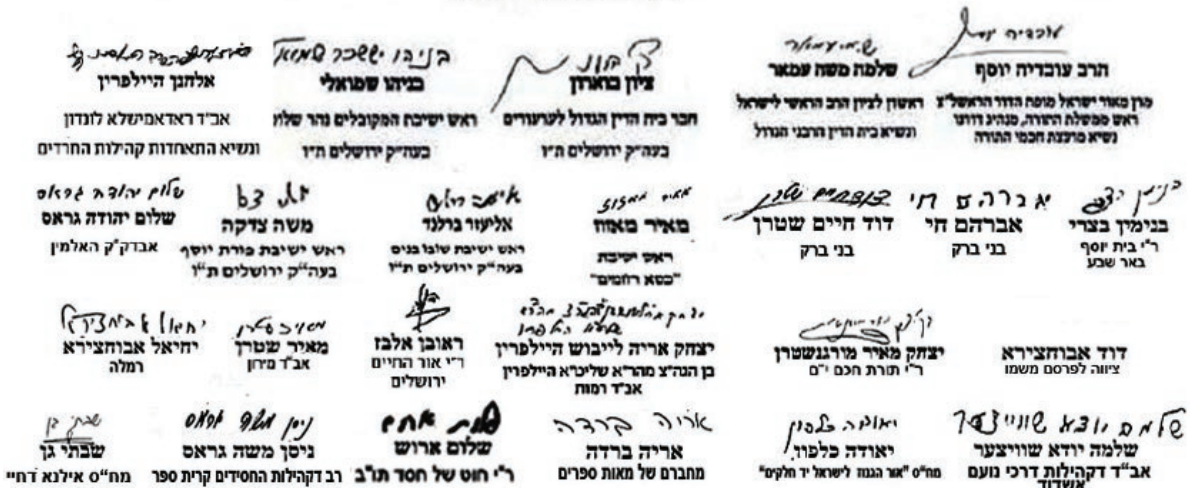 הרב עובדיה יוסף
מרן מאור ישראל מופת הדור הראשל"צ
ראש ממשלת התורה, מנהיג דורנו
נשיא מועצת חכמי התורה
שלמה משה עמאר
ראשון לציון הרב הראשי לישראל
ונשיא בית הדין הרבני הגדול
ציון בוארון
חבר בית הדין הגדול לערעורים
בעה"ק ירושלים ת"ו
בניהו יששכר שמואלי
בניהו שמואלי
ראש ישיבת המקובלים נהר שלום
בעה"ק ירושלים ת"ו
אלחנן היילפרין
אב"ד ראדאמישלא לונדון
ונשיא התאחדות קהילות החרדים
בנימין בצרי
ר"י בית יוסף
באר שבע
אברהם חי
אברהם חי
בני ברק
דוד חיים שטרן
דוד חיים שטרן
בני ברק
מאיר מאזוז
מאיר מאזוז
ראש ישיבת
"כסא רחמים"
אליעזר ברלנד
ראש ישיבת שובו בנים
בעה"ק ירושלים ת"ו
משה צדקה
ראש ישיבת פורת יוסף
בעה"ק ירושלים ת"ו
שלום יהודה גראס
שלום יהודה גראס
אבדק"ק האלמין
דוד אבוחצירא
ציווה לפרסם משמו
יצחק מאיר מורגנשטרן
ר"י תורת חכם י"ם
יצחק אריה לייבוש היילפרין
בן הגה"צ מהר"א שליט"א היילפרין
אב"ד רמות
ראובן אלבז
ר"י אור החיים
ירושלים
מאיר שטרן
מאיר שטרן
אב"ד מירון
יחיאל אבוחצירא
יחיאל אבוחצירא
רמלה
שלמה יודא שוויצער
שלמה יודא שוויצער
אב"ד דקהילות דרכי נועם
אשדוד
יאודה כלפון
יאודה כלפון
מח"ס "אור הגנוז לישראל יד חלקים"
אריה ברדה
אריה ברדה
מחברם של מאות ספרים
שלום ארוש
שלום ארוש
ר"י חוט של חסד תו"ב
ניסן משה גראס
ניסן משה גראס
רב דקהילות החסידים קרית ספר
שבתי גן
שבתי גן
מח"ס אילנא דחיי